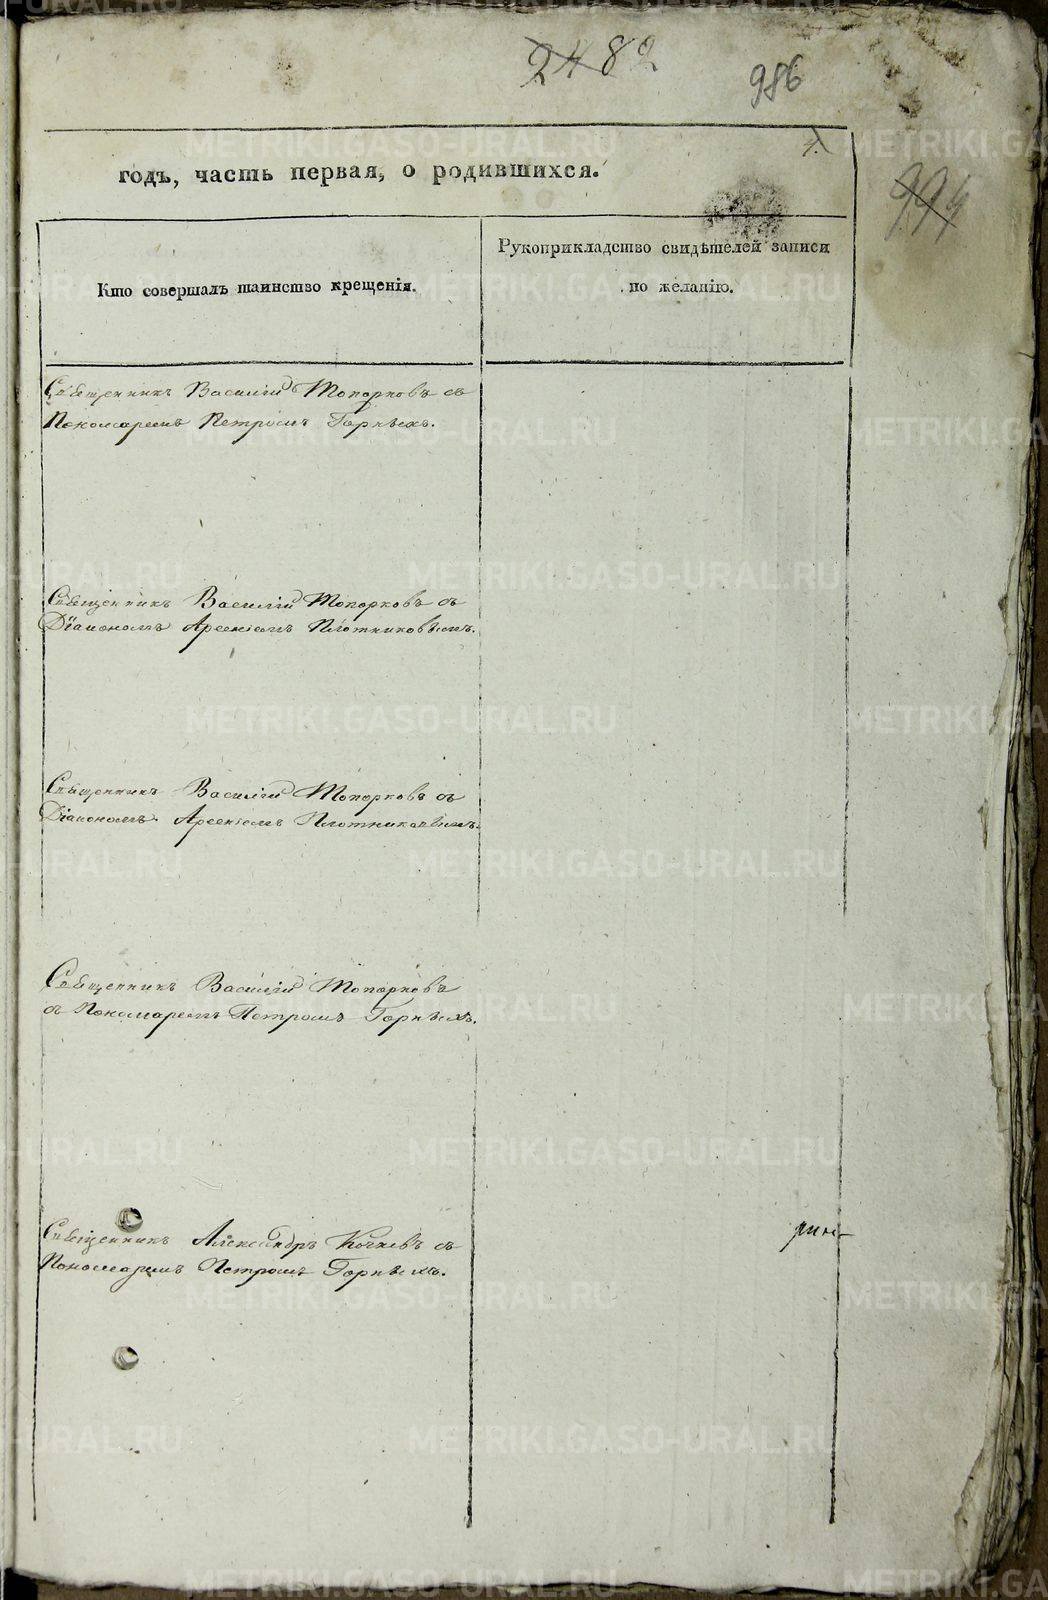 2482
986
4.
994
годъ, часть первая, о родившихся.
Кто совершалъ таинство крещенія.
Рукоприкладство свидѣтелей записи
по желанію.
Священникъ Василій Топорковъ съ
Пономаремъ Петромъ Горныхъ.
Священникъ Василій Топорковъ съ
Діакономъ Арсеніемъ Плотниковымъ.
Священникъ Василій Топорковъ съ
Діакономъ Арсеніемъ Плотниковымъ.
Священникъ Василій Топорковъ
съ Пономаремъ Петромъ Горныхъ.
Священникъ Александръ Кочневъ съ
Пономаремъ Петромъ Горныхъ.
METRIKI.GASO-URAL.RU